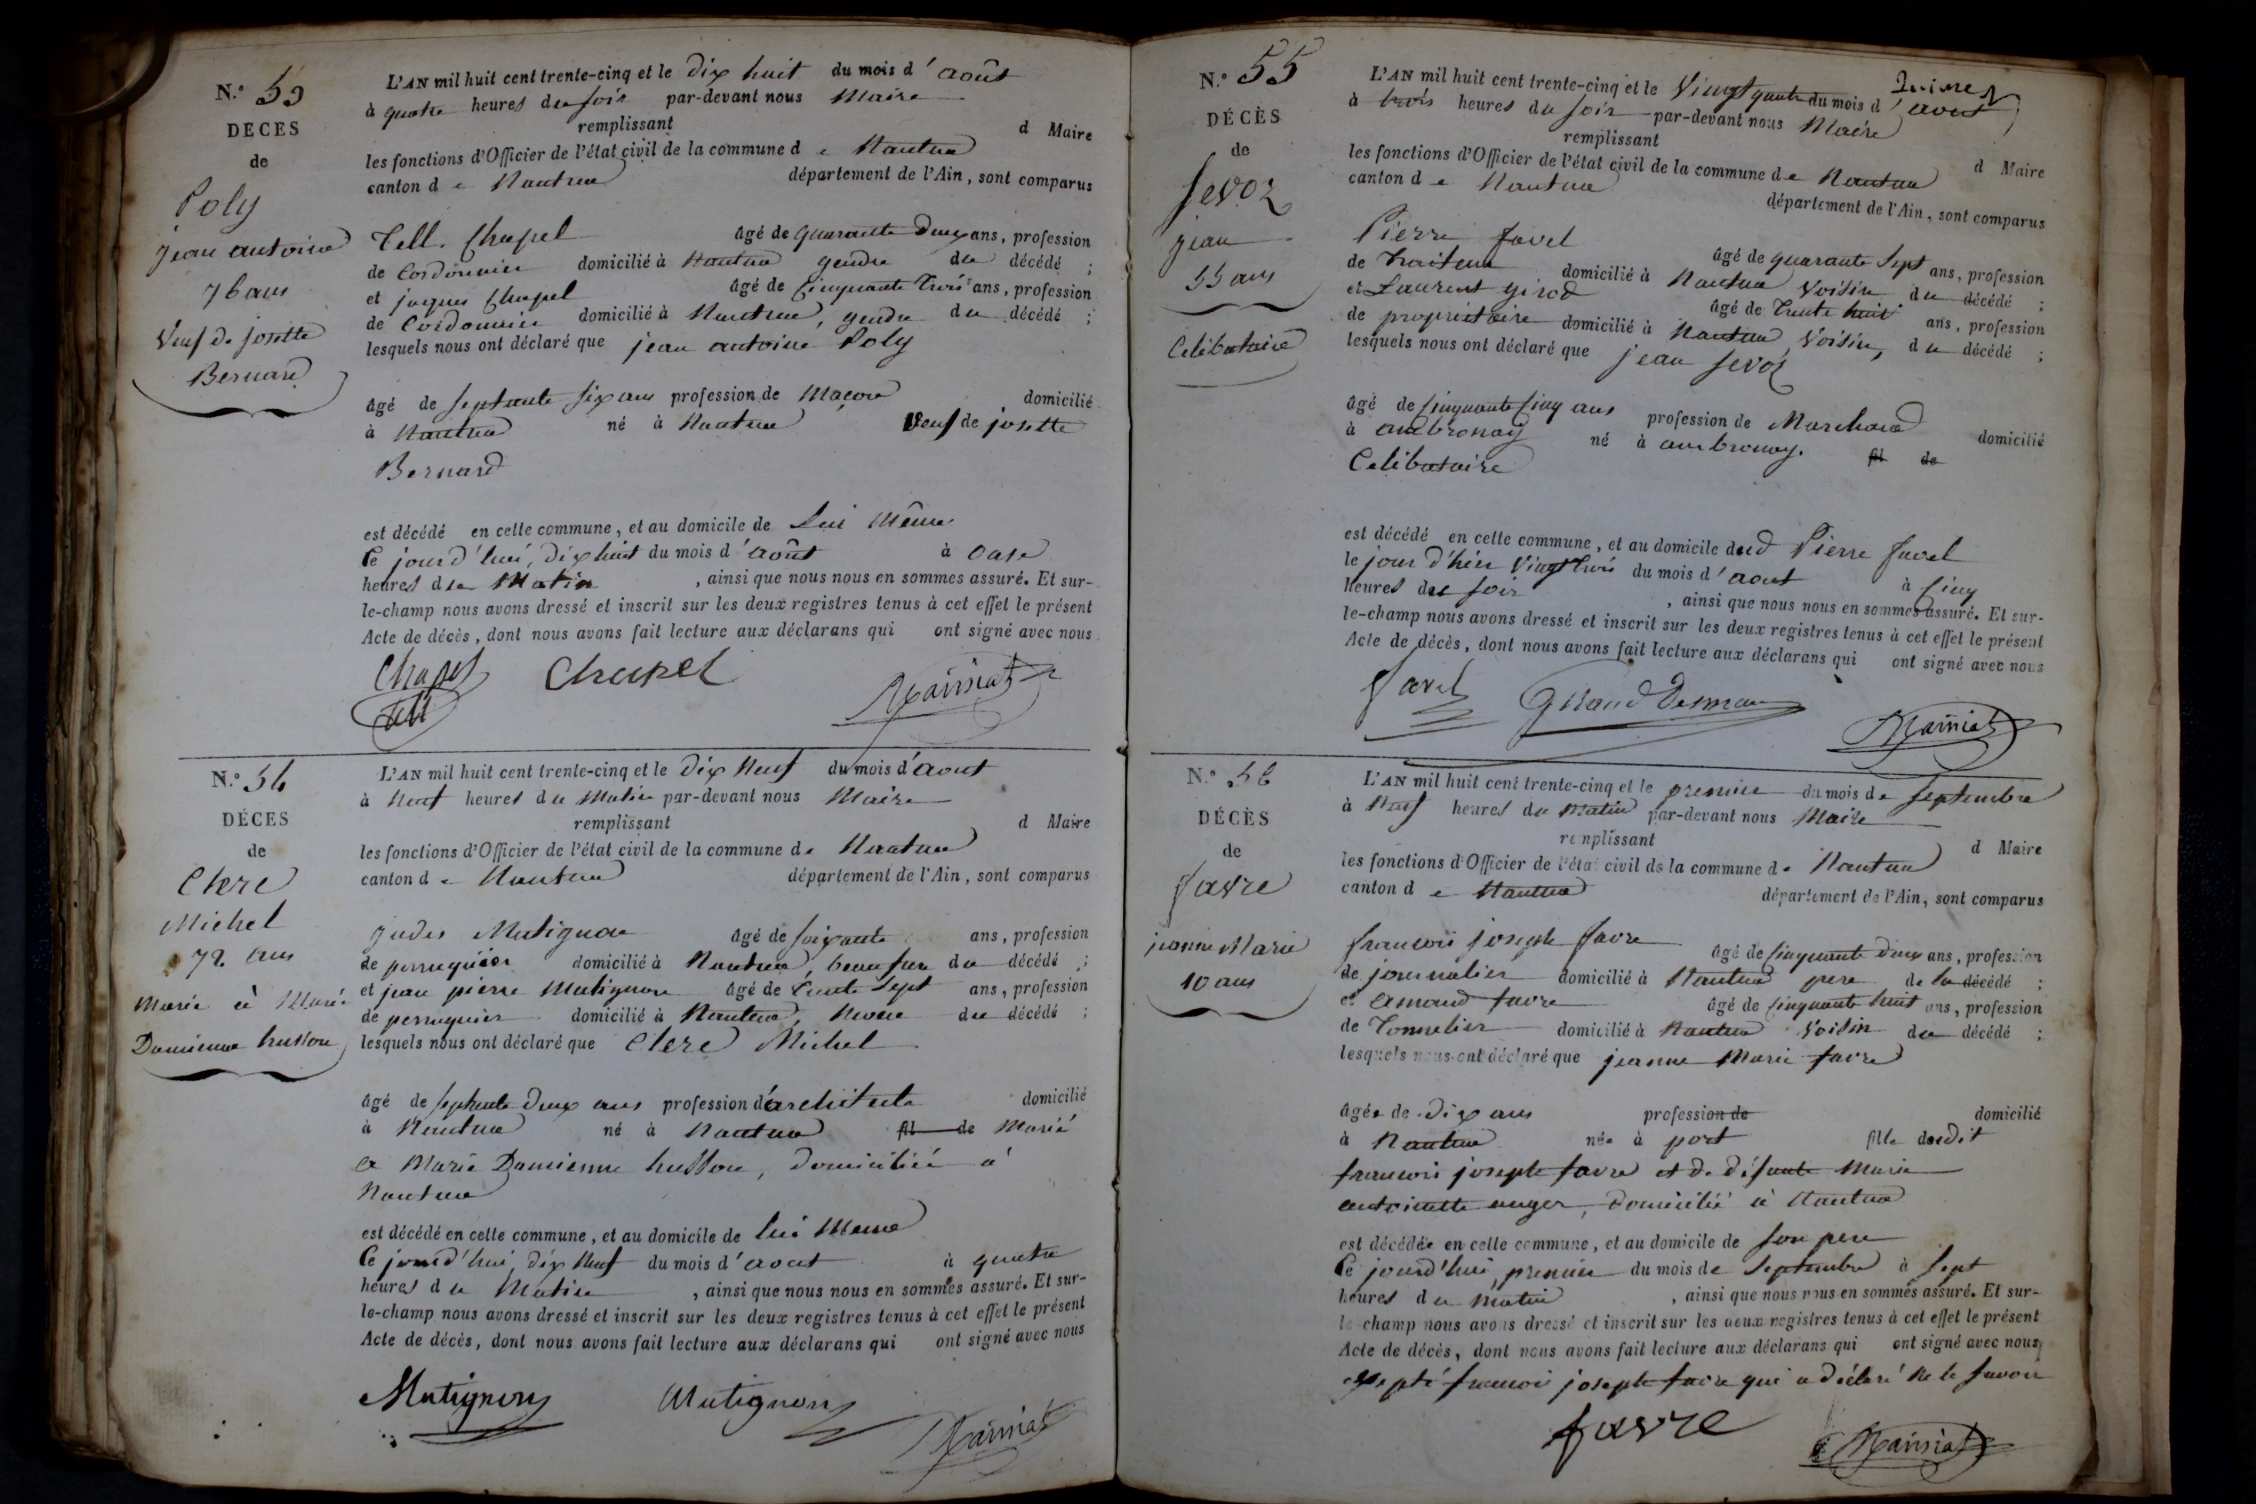 N.° 53
DÉCES
de
Poly
jean antoine
76 ans
Veuf de josette
Bernard
L'AN mil huit cent trente-cinq et le dix huit du mois d'août
à quatre heures du soir par-devant nous Maire
remplissant d Maire
les fonctions d'Officier de l'état civil de la commune de Nantua
canton de Nantua département de l'Ain, sont comparus
Tell. Chapel âgé de quarante deux ans, profession
de Cordonnier domicilié à Nantua gendre du décédé ;
et jacques Chapel âgé de Cinquante trois ans, profession
de Cordonnier domicilié à Nantua, gendre du décédé ;
lesquels nous ont déclaré que jean antoine Poly
âgé de septante six ans profession de Maçon domicilié
à Nantua né à Nantua Veuf de josette
Bernard
est décédé en cette commune, et au domicile de Lui Même
Ce jourd'hui, dix huit du mois d'août à onze
heures du Matin, ainsi que nous nous en sommes assuré. Et sur-
le-champ nous avons dressé et inscrit sur les deux registres tenus à cet effet le présent
Acte de décès, dont nous avons fait lecture aux déclarans qui ont signé avec nous
Chapel Chapel
Tell
N.° 54
DÉCES
de
Clerc
Michel
72 ans
Marié à Marie
Damienne husson
L'AN mil huit cent trente-cinq et le dix Neuf du mois d'aout
à Neuf heures du Matin par-devant nous Maire
remplissant d Maire
les fonctions d'Officier de l'état civil de la commune de Nantua
canton de Nantua département de l'Ain, sont comparus
Matignon âgé de soixante ans, profession
de perruquier domicilié à Nantua, beau frere du décédé ;
et jean pierre Matignon âgé de trente sept ans, profession
de perruquier domicilié à Nantua, Neveu du décédé ;
lesquels nous ont déclaré que Clerc Michel
âgé de septante deux ans profession d'architecte domicilié
à Nantua né à Nantua fil de Marié
à Marie Damienne husson, domiciliée à
Nantua
est décédé en cette commune, et au domicile de lui Meme
Ce jourd'hui, dix Neuf du mois d'aout à quatre
heures du Matin, ainsi que nous nous en sommes assuré. Et sur-
le-champ nous avons dressé et inscrit sur les deux registres tenus à cet effet le présent
Acte de décès, dont nous avons fait lecture aux déclarans qui ont signé avec nous
Matignon Matignon
N.° 55
DÉCÈS
de
Sevoz
jean
55 ans
Celibataire
L'AN mil huit cent trente-cinq et le Vingt quatre du mois d'aout
à trois heures du soir par-devant nous Maire
remplissant d Maire
les fonctions d'Officier de l'état civil de la commune de Nantua
canton de Nantua département de l'Ain, sont comparus
Pierre favel âgé de quarante sept ans, profession
de traiteur domicilié à Nantua Voisin du décédé ;
et Laurent girod âgé de trente huit ans, profession
de propriétaire domicilié à Nantua, Voisin, du décédé ;
lesquels nous ont déclaré que jean Sevoz
âgé de Cinquante Cinq ans profession de Marchand domicilié
à ambronay né à ambronay. fil de
Celibataire
est décédé en cette commune, et au domicile dud Pierre favel
le jour d'hier Vingt trois du mois d'aout à Cinq
heures du soir, ainsi que nous nous en sommes assuré. Et sur-
le-champ nous avons dressé et inscrit sur les deux registres tenus à cet effet le présent
Acte de décès, dont nous avons fait lecture aux déclarans qui ont signé avec nous
favel
N.° 56
DÉCÈS
de
favre
jeanne Marie
10 ans
L'AN mil huit cent trente-cinq et le premier du mois de septembre
à Neuf heures du Matin par-devant nous Maire
remplissant d Maire
les fonctions d'Officier de l'état civil de la commune de Nantua
canton de Nantua département de l'Ain, sont comparus
francois joseph favre âgé de Cinquante deux ans, profession
de journalier domicilié à Nantua pere de la décédé ;
et amand favre âgé de Cinquante huit ans, profession
de Tonnelier domicilié à Nantua Voisin du décédé ;
lesquels nous ont déclaré que jeanne Marie favre
âgée de dix ans profession de domicilié
à Nantua née à port fille dudit
francois joseph favre et de défunte Marie
antoinette auger, domiciliée à Nantua
est décédée en cette commune, et au domicile de son pere
Ce jourd'hui, premier du mois de Septembre à sept
heures du Matin, ainsi que nous nous en sommes assuré. Et sur-
le-champ nous avons dressé et inscrit sur les deux registres tenus à cet effet le présent
Acte de décès, dont nous avons fait lecture aux déclarans qui ont signé avec nous
excepté francois joseph favre qui a déclaré ne le savoir
favre